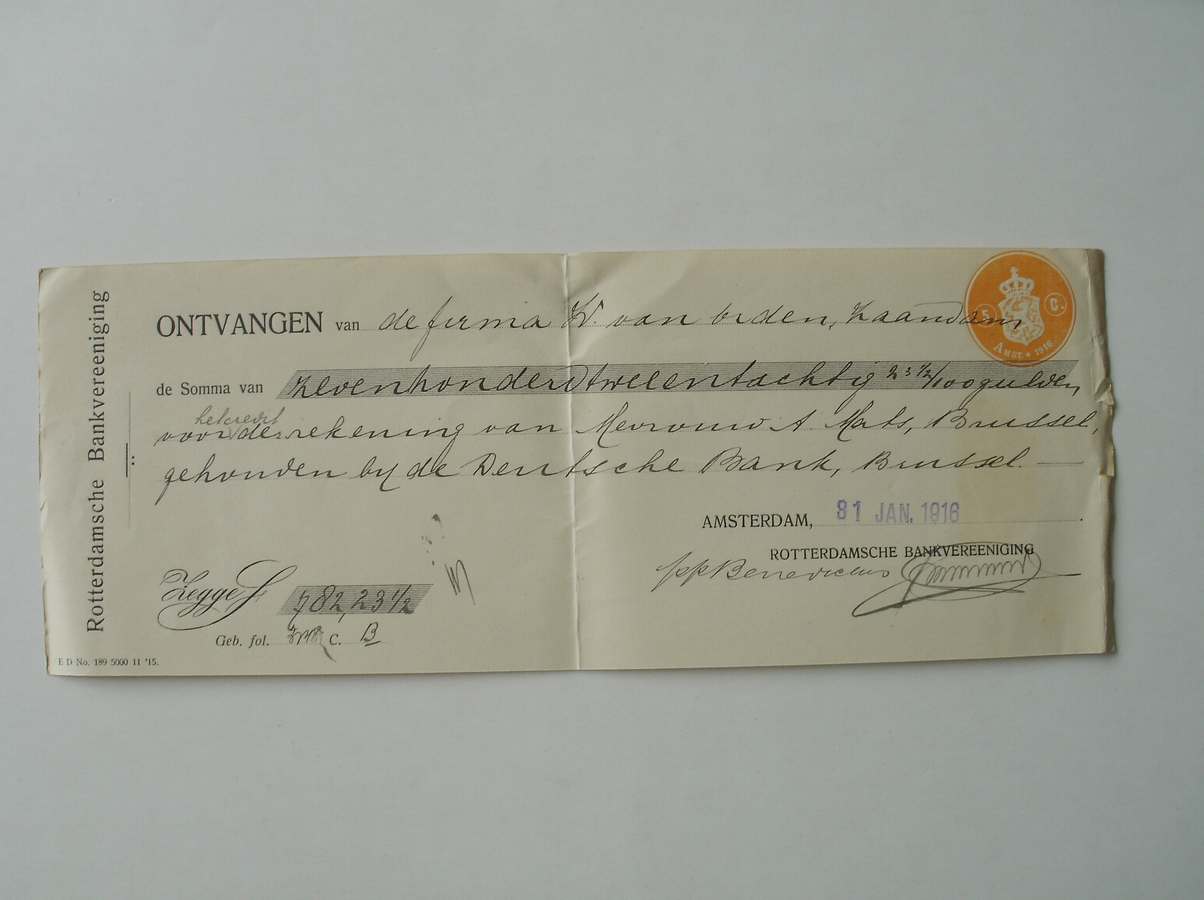 Rotterdamsche Bankvereeniging
ONTVANGEN van de firma W. van Orden, Zaandam
5 C.
AMST. * 1916
de Somma van zevenhonderdtweeentachtig 23 1/2/100 gulden,
het credit
voor de rekening van Mevrouw A. Mats, Brussel,
gehouden bij de Deutsche Bank, Brussel. —
AMSTERDAM, 31 JAN. 1916
ROTTERDAMSCHE BANKVEREENIGING
pp Benedictus
Zegge f 782,23 1/2
Geb. fol. C. B
E D No. 189 5000 11 '15.